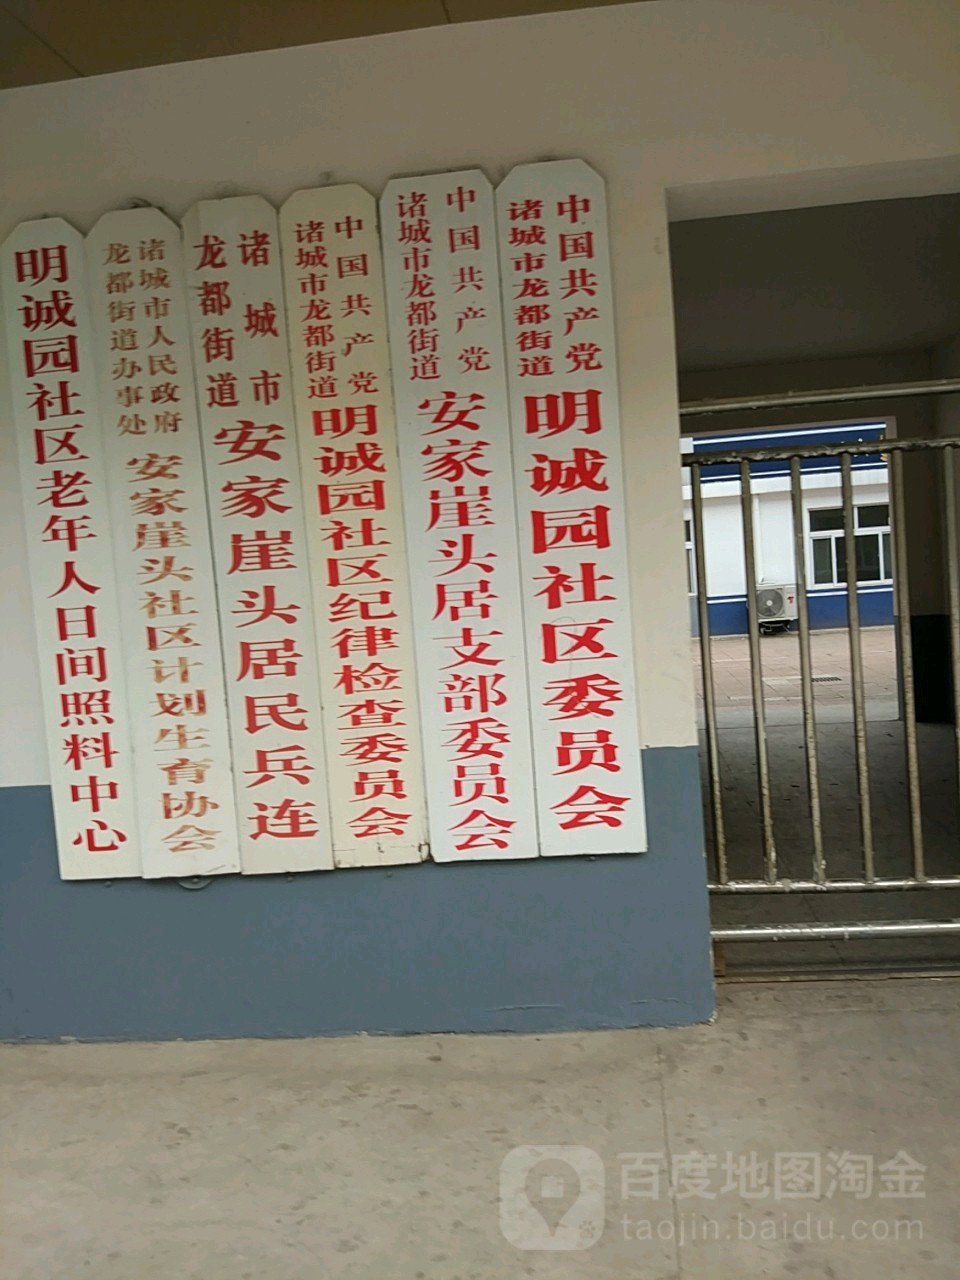 明诚园社区老年人日间照料中心
诸城市人民政府
龙都街道办事处
安家崖头社区计划生育协会
诸城市
龙都街道
安家崖头居民兵连
中国共产党
诸城市龙都街道
明诚园社区纪律检查委员会
中国共产党
诸城市龙都街道
安家崖头居支部委员会
中国共产党
诸城市龙都街道
明诚园社区委员会
百度地图淘金
taojin.baidu.com